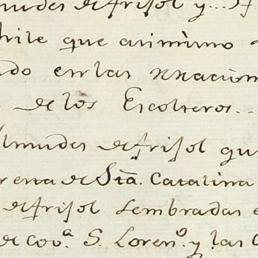 mudes de frisol y...
hile que asimimo
do en las nnacion
de los Escolteros..
lmudes de frisol qu
rena de Sta. Catalina
de frisol sembradas e
de Cova. S. Loreno. y las C